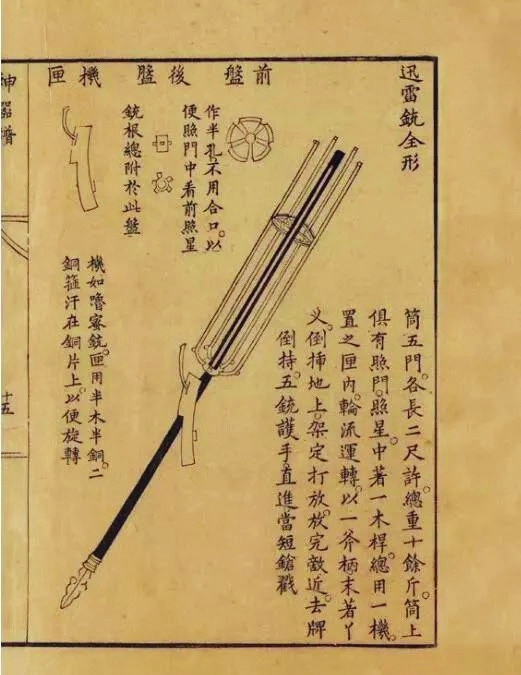 迅雷銃全形
前盤 後盤 機匣
作半孔。不用合口。以
便照門中看前照星
銃根總附於此盤
機如嚕密銃。匣用半木半銅。二
銅箍汗在銅片上。以便旋轉
筒五門。各長二尺許。總重十餘斤。筒上
俱有照門。照星。中著一木桿。總用一機。
置之匣內。輪流運轉。以一斧柄末著丫
义。倒插地上。架定打放。放完敵近。去牌
倒持。五銃護手。直進當短鎗戳
神器譜
十五